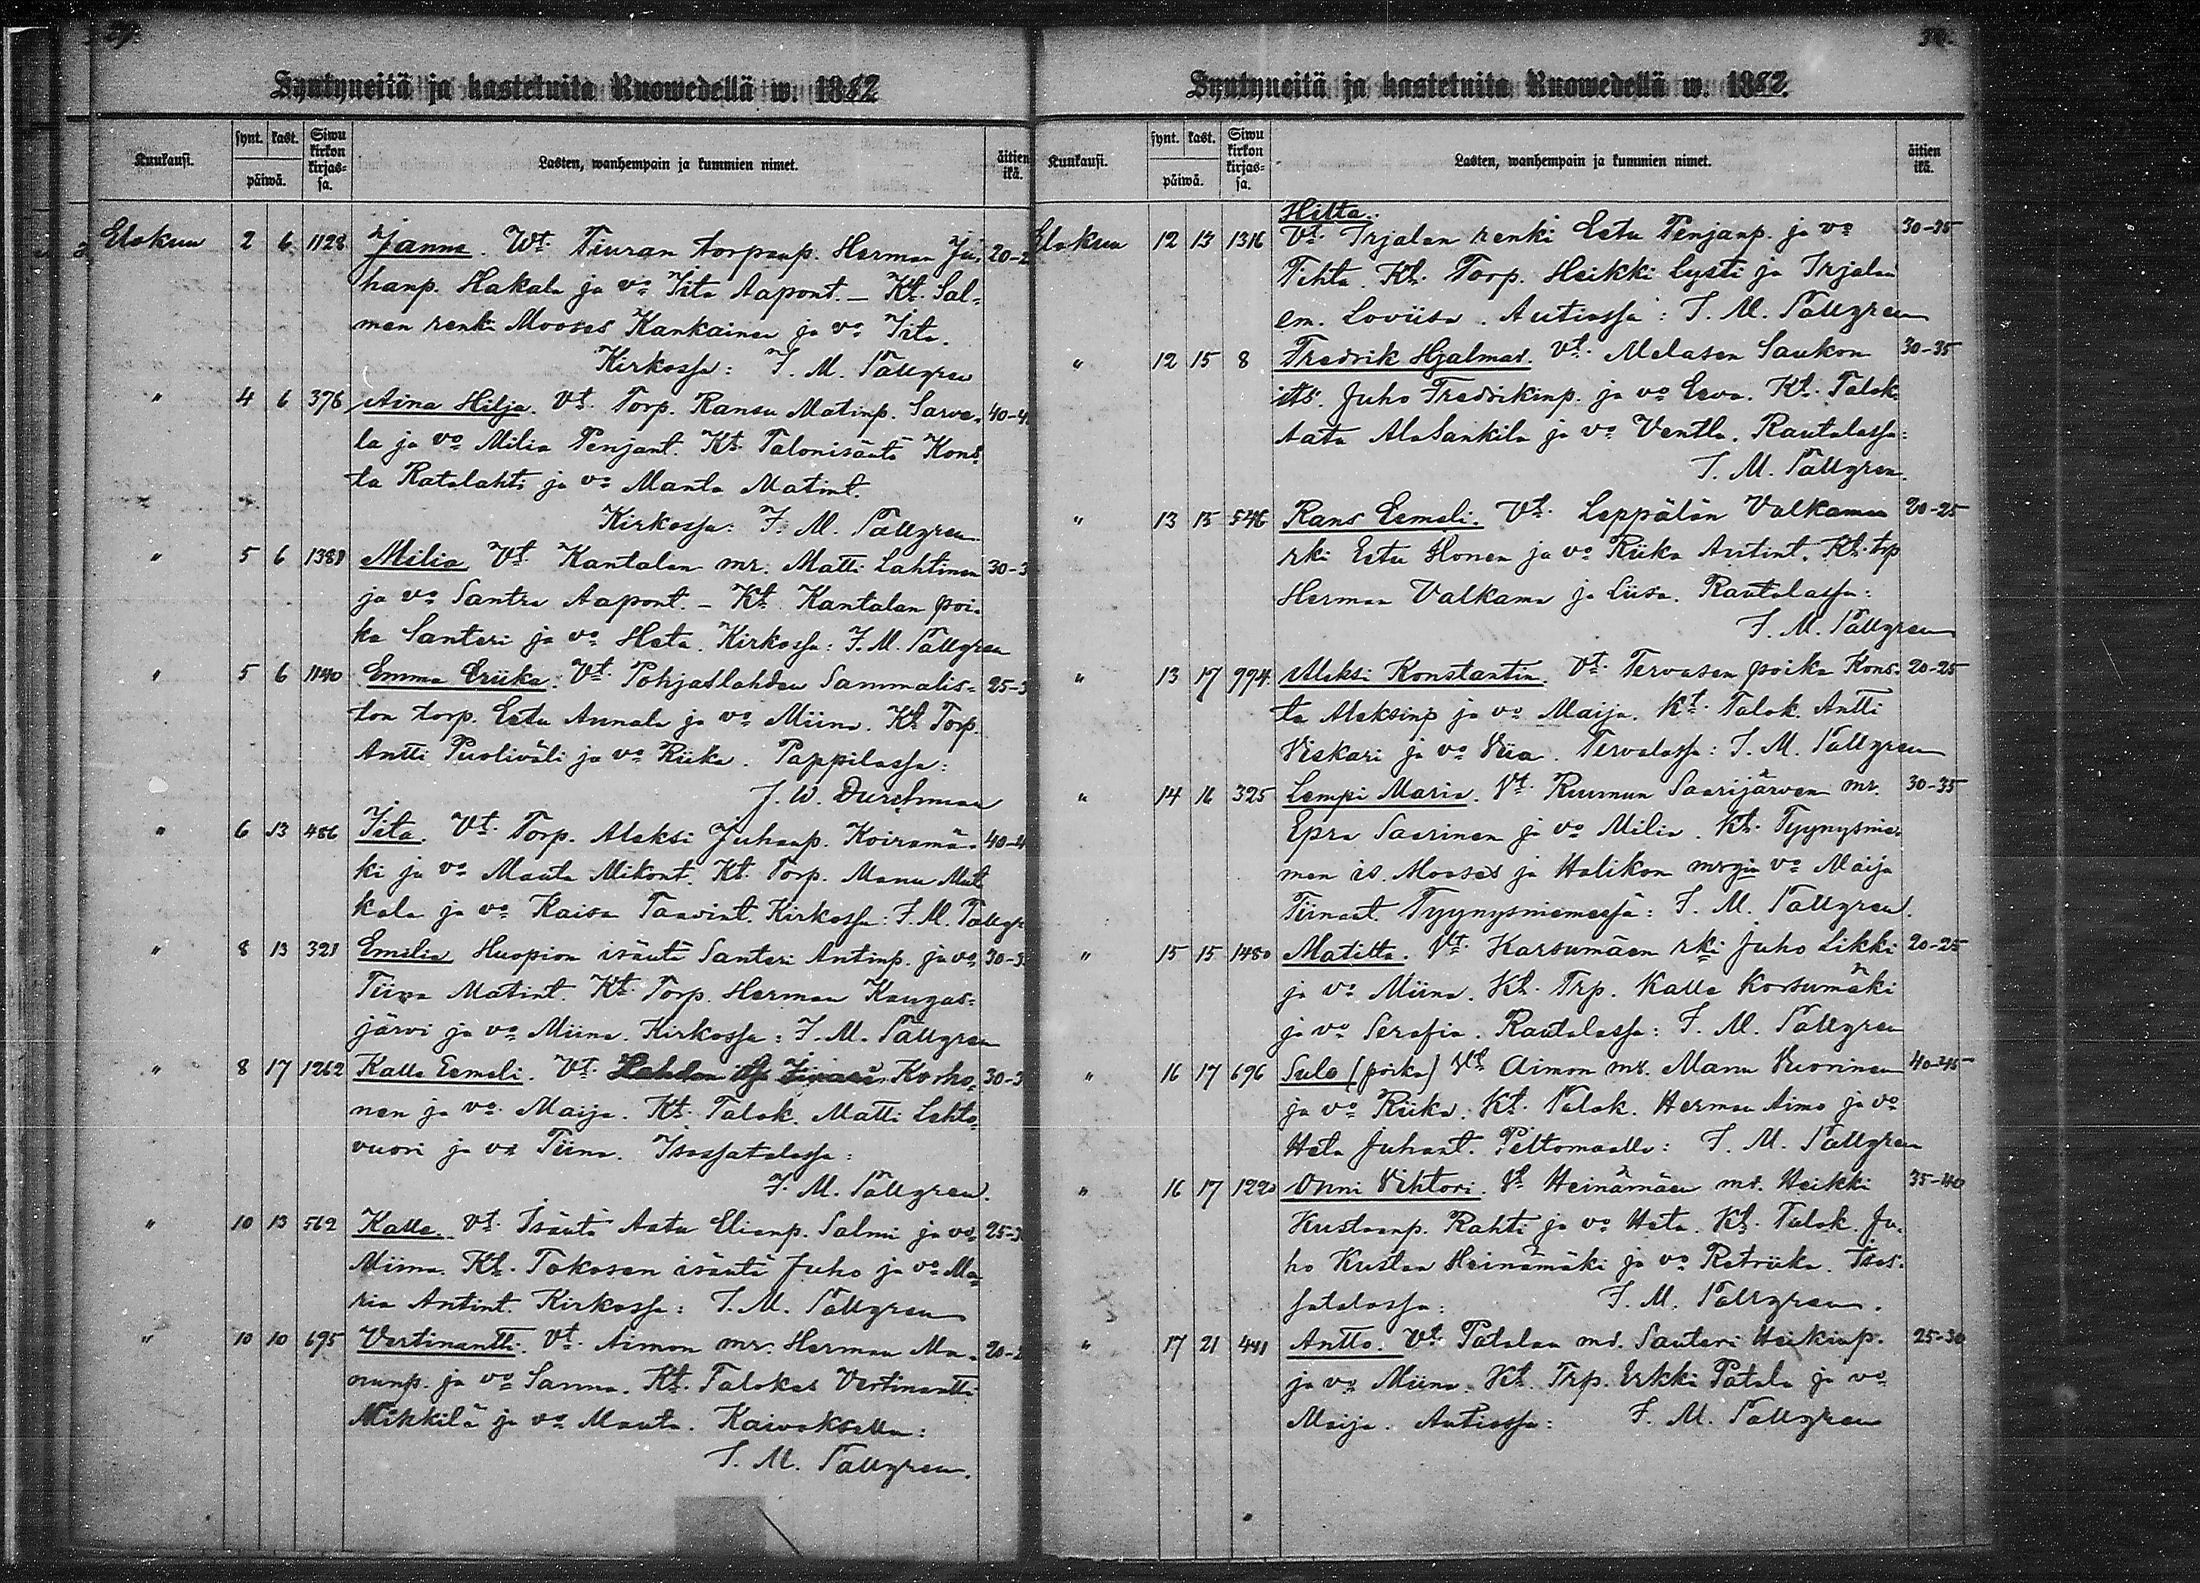 29.
Syntyneitä ja kastetuita Ruowedellä w. 1882
Kuukausi. synt. kast. päiwä. Siwu kirkon kirjas=sa. Lasten, wanhempain ja kummien nimet. äitien ikä.
Elokuu 2 6 1128 Janna. Wt. Tiuran torpanp. Herman Ju= 20-2
hanp. Hakala ja vo Iita Aapont. – Kt. Sal=
men renki Mooses Kankainen ja vo Iita.
Kirkossa: F. M. Tallgren
" 4 6 376 Aina Hilja. Vt. Torp. Ransu Matinp. Sarve= 40-4
la ja vo Milia Penjant. Kt. Talonisäntä Kons=
ta Ratalahti ja vo Manta Matint.
Kirkossa: F. M. Tallgren
" 5 6 1381 Milia Vt. Kantalan mr. Matti Lahtinen 30-3
ja vo Santra Aapont. – Kt. Kantalan poi=
ka Santeri ja vo Heta. Kirkossa: F. M. Tallgren
" 5 6 1140 Emma Eriika. Vt. Pohjaslahden Sammalis= 25-3
ton torp. Eetu Annala ja vo Miina. Kt. Torp.
Antti Puoliväli ja vo Riika. Pappilassa:
J. W. Durchman
" 6 13 486 Iita. Vt. Torp. Aleksi Juhanp. Koiramä= 40-4
ki ja vo Manta Mikont. Kt. Torp. Manu Mut
kala ja vo Kaisa Taavint. Kirkossa: F. M. Tallgr
" 8 13 321 Emilia Huopion isäntä Santeri Antinp. ja vo 30-3
Tiina Matint. Kt. Torp. Herman Kangas=
järvi ja vo Miina. Kirkossa: F. M. Tallgren
" 8 17 1262 Kalle Eemeli. Vt. Korho= 30-3
nen ja vo Maija. Kt. Talok. Matti Lehto=
vuori ja vo Tiina. Isossatalossa:
F. M. Tallgren.
" 10 13 562 Kalle. Vt. Isäntä Aatu Elianp. Salmi ja vo 25-3
Miina. Kt. Tokosen isäntä Juho ja vo Ma=
ria Antint. Kirkossa: F. M. Tallgren
" 10 10 695 Vertinantti. Vt. Aimon mr. Herman Ma= 20-2
nunp. ja vo Sanna. Kt. Talokas Vertinantti
Mikkilä ja vo Manta. Kaivoksella:
F. M. Tallgren.
30.
Syntyneitä ja kastetuita Ruowedellä w. 1882.
Kuukausi. synt. kast. päiwä. Siwu kirkon kirjas=sa. Lasten, wanhempain ja kummien nimet. äitien ikä.
Hilta.
Elokuu 12 13 1316 Vt. Irjalan renki Eetu Penjanp. ja vo 30-35
Tihta. Kt. Torp. Heikki Lysti ja Irjalan
em. Loviisa. Autiossa: F. M. Tallgren
" 12 15 8 Fredrik Hjalmar. Vt. Melasen Saukon 30-35
its. Juho Fredrikinp. ja vo Eeva. Kt. Talok.
Aata AlaSankila ja vo Ventla. Rautalassa:
F. M. Tallgren.
" 13 15 546 Rans Eemeli. Vt. Leppälän Valkaman 20-25
rki Eetu Honen ja vo Riika Antint. Kt. trp
Herman Valkama ja Liisa. Rautalassa:
F. M. Tallgren
" 13 17 994 Aleksi Konstantin. Vt. Tervasen poika Kons= 20-25
ta Aleksinp ja vo Maija. Kt. Talok. Antti
Viskari ja vo Viia. Tervalassa: F. M. Tallgren
" 14 16 325 Lempi Maria. Vt. Ruumun Saarijärven mr. 30-35
Epra Saarinen ja vo Milia. Kt. Tyynysnie=
men is. Mooses ja Halikon mrgin vo Maija
Tiinant. Tyynysniemessä: F. M. Tallgren.
" 15 15 1480 Matilta. Vt. Karsumäen rki Juho Likki 20-25
ja vo Miina. Kt. Trp. Kalle Korsumäki
ja vo Serafia. Rautalassa: F. M. Tallgren
" 16 17 696 Sulo (poika) Vt. Aimon mr. Manu Vuorinen 40-45
ja vo Riika. Kt. Talok. Herman Aimo ja vo
Heta Juhant. Peltomaalla: F. M. Tallgren
" 16 17 1220 Onni Vihtori. Vt. Heinämäen mr. Heikki 35-40
Kustaanp. Rahti ja vo Heta. Kt. Talok. Ju=
ho Kustaa Heinämäki ja vo Retriika. Isos=
satalossa: F. M. Tallgren.
" 17 21 441 Antto. Vt. Patalan mr. Santeri Heikinp. 25-30
ja vo Miina. Kt. Trp. Erkki Patala ja vo
Maija. Autiossa: F. M. Tallgren